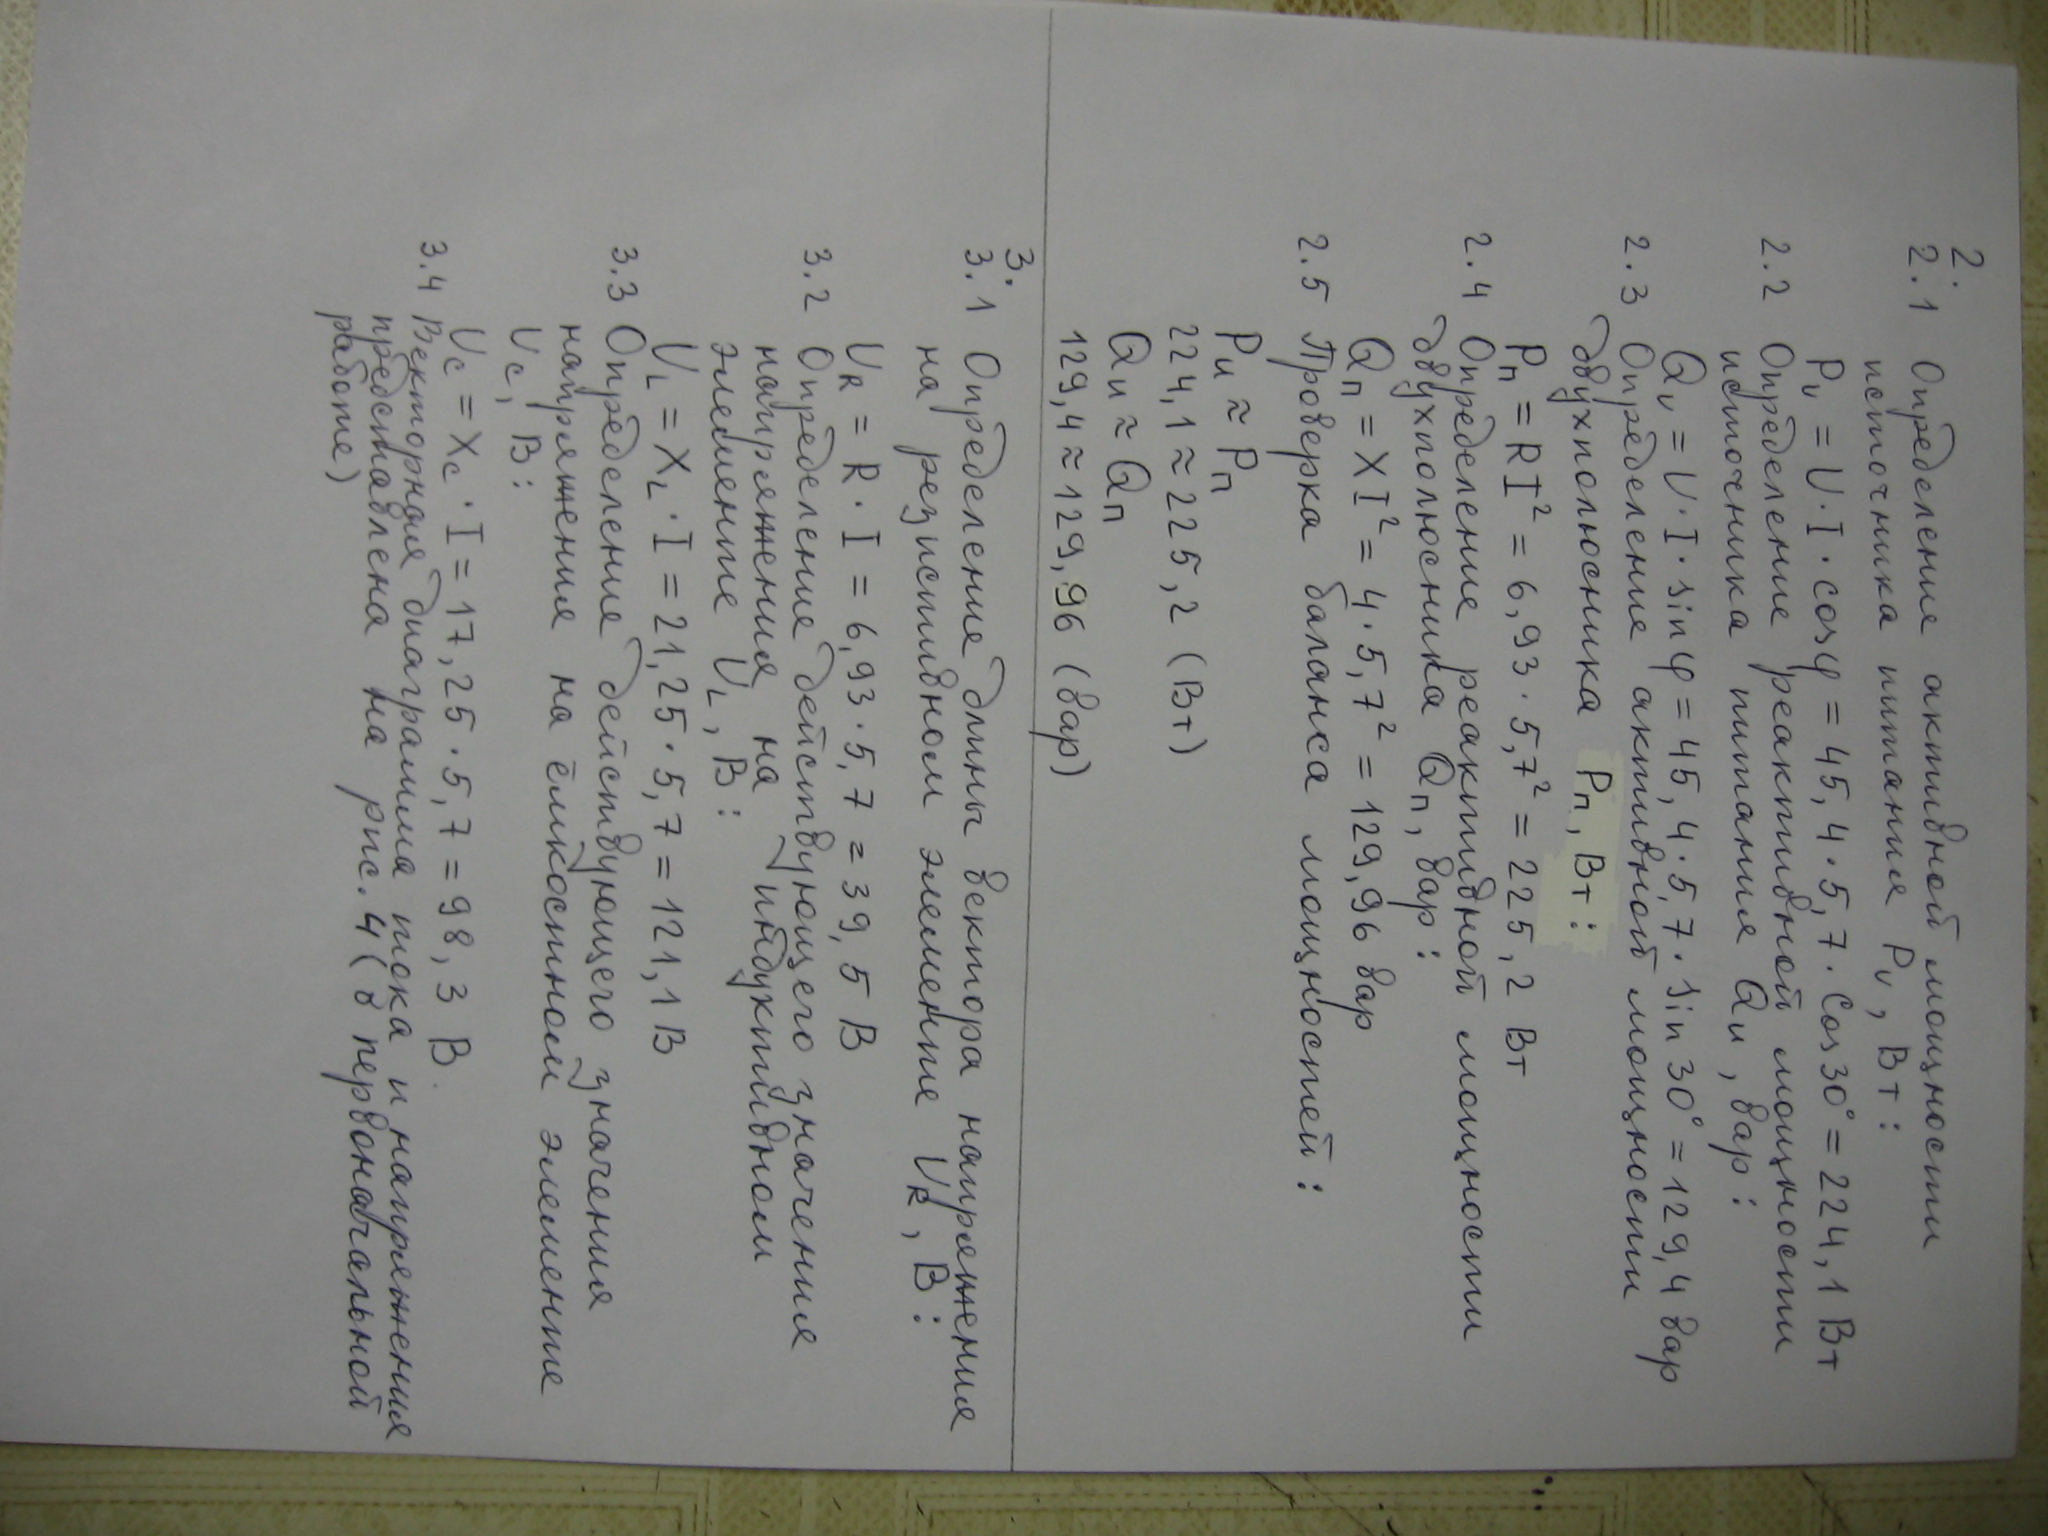 2.
2.1 Определение активной мощности
источника питания Pu, Вт:
Pu = U · I · cosφ = 45,4 · 5,7 · Cos30° = 224,1 Вт
2.2 Определение реактивной мощности
источника питания Qи, вар:
Qu = U · I · sinφ = 45,4 · 5,7 · sin30° = 129,4 вар
2.3 Определение активной мощности
двухполюсника Pп, Вт:
Pп = RI² = 6,93 · 5,7² = 225,2 Вт
2.4 Определение реактивной мощности
двухполюсника Qп, вар:
Qп = XI² = 4 · 5,7² = 129,96 вар
2.5 Проверка баланса мощностей:
Pи ≈ Pп
224,1 ≈ 225,2 (Вт)
Qи ≈ Qп
129,4 ≈ 129,96 (вар)
3.
3.1 Определение длины вектора напряжения
на резистивном элементе UR, В:
UR = R · I = 6,93 · 5,7 = 39,5 В
3.2 Определение действующего значения
напряжения на индуктивном
элементе UL, В:
UL = XL · I = 21,25 · 5,7 = 121,1 В
3.3 Определение действующего значения
напряжения на ёмкостном элементе
UC, В:
UC = XC · I = 17,25 · 5,7 = 98,3 В.
3.4 Векторная диаграмма тока и напряжения
представлена на рис. 4 (в первоначальной
работе)